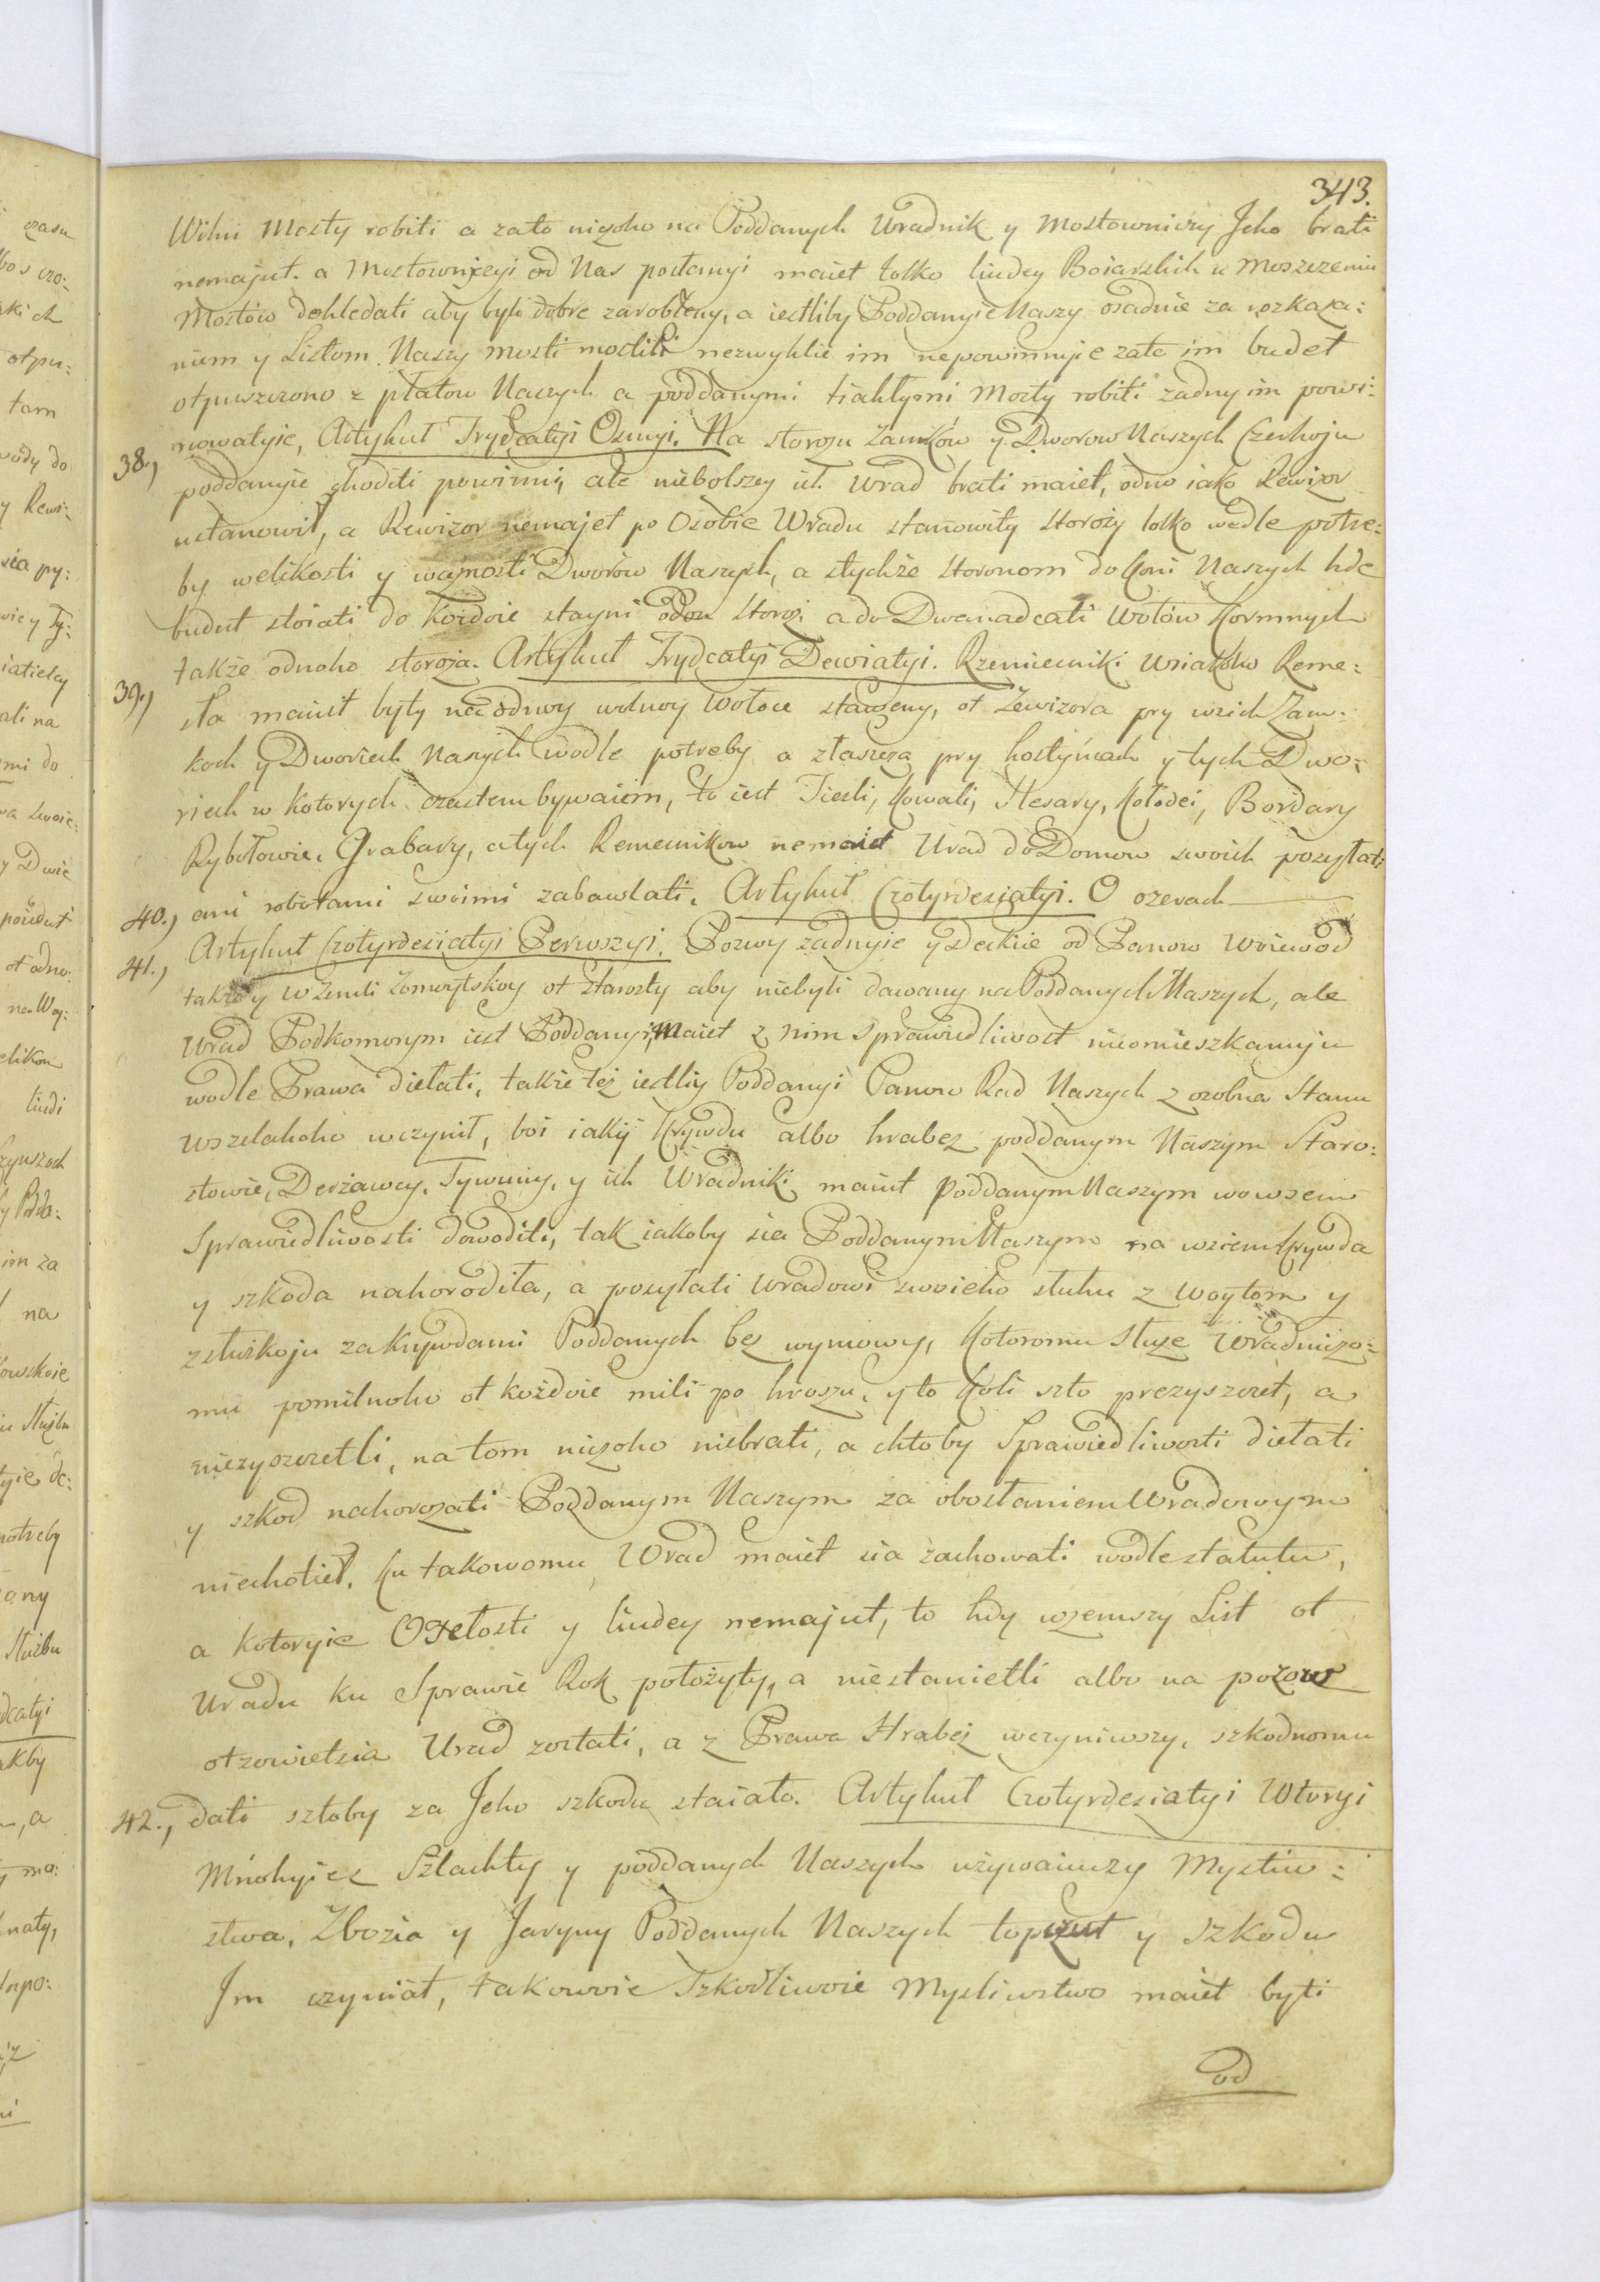 343.
Wilni Mosty robiti a zato niczoho na Poddanych Uradnik y Mostowniczy Jeho brati
nemajut. a Mostowniczyi od Nas posłanyi maiet tolko liudey Boiarskich u Moszczeniu
Mostów dohledati aby były dobre zarobleny, a iestliby Poddanyie Naszy osadnie za rozkaza:
niem y Listom Naszy mosti mostili nezwykłie im nepowinnyie zato im budet
otpuszczono z płatow Naszych a poddanymi tiahłymi Mosty robiti żadny im powi:
nowatyie, Artykuł Trydcatyi Osmyi. Na storożu Zamków y Dworow Naszych Czerhoju
38., poddanyie chodeti powinni, ale niebolszey ich Wrad brati maiet, odno iako Rewizor
ustanowit, a Rewizor nemajet po Osobie Wradu stanowity storoży tolko wedle potre:
by welikosti y ważnosti Dworów Naszych, a stychże storonom do Koni Naszych hde
budut stoiati do Kożdoie stayni odon storoż a do Dwanadcati Wołów Kormnych
także odnoho storoża. Artykuł Trydcatyi Dewiatyi. Rzemiesniki Wsiakoho Reme:
39., sła maiut byty na odnoy wolnoy Wołoce stawleny, ot Rewizora pry wsich Zam:
koch y Dworiech Naszych wodle potreby a złaszcza pry hostyńcach y tych Dwo:
riech w Kotorych czastem bywaiem, to iest Tiesli, Kowali, Slesary, Kołodei, Bordary
Rybołowie, Grabary, a tych Remesnikow nemaiet Urad do Domow swoich posyłati
ani robotami swoimi zabawlati. Artykuł Czotyrdesiatyi. O ozerach
40.,
41., Artykuł Czotyrdesiatyi Perwszyi. Pozwy żadnyie y Deckie od Panow Woiewod
także y w Zemli Żomoytskoy ot Starosty aby niebyli dawany na Poddanych Naszych, ale
Wrad Podkomorym iest Poddanyi, Maiet z nim sprawiedliwost nieomieszkanuju
wodle Prawa diełati, także też iestliy Poddanyi Panow Rad Naszych z osobna Stanu
wszelakoho wczynił, boi iakij Krywdu albo hrabez poddanym Naszym Staro:
stowie, Derżawcy, Tywuny, y ich Wradniki maiut Poddanym Naszym wo wsem
Sprawiedliwosti dowoditi, tak iakoby sia Poddanym Naszym na wsiem Krywda
y szkoda nahorodiła, a posyłati Wradowi swoieho słuhu z Woytom y
z Ławkoju za Krywdami Poddanych bez wymowy, Kotoromu Słuze Wradniczo:
mu pomilnoho ot koźdoie mili po hroszu, y to Koli szto prezyszczet, a
niezyszczetli, na tom niczoho niebrati, a chtoby Sprawiedliwosti diełati
y szkod nahorożati Poddanym Naszym za obosłaniem Wradowym
niechotieł, ku takowomu Wrad maiet sia zachowati wodle statutu,
a kotoryie Osełosti y liudey nemajut, to hdy wzemszy List ot
Uradu ku Sprawie Rok położyły, a niestanietli albo na pozow
otzowietsia Urad zostati, a z Prawa Hrabeż wczyniwszy, szkodnomu
42., dati sztoby za Jeho szkodu staiało. Artykuł Czotyrdesiatyi Wtoryi
Mnohyiez Szlachty y poddanych Naszych używaiuczy Mysliw:
stwa, Zboża y Jaryny Poddanych Naszych topczut y szkodu
Im czyniat, takowoie Szkodliwoie Mysliwstwo maiet byti
od